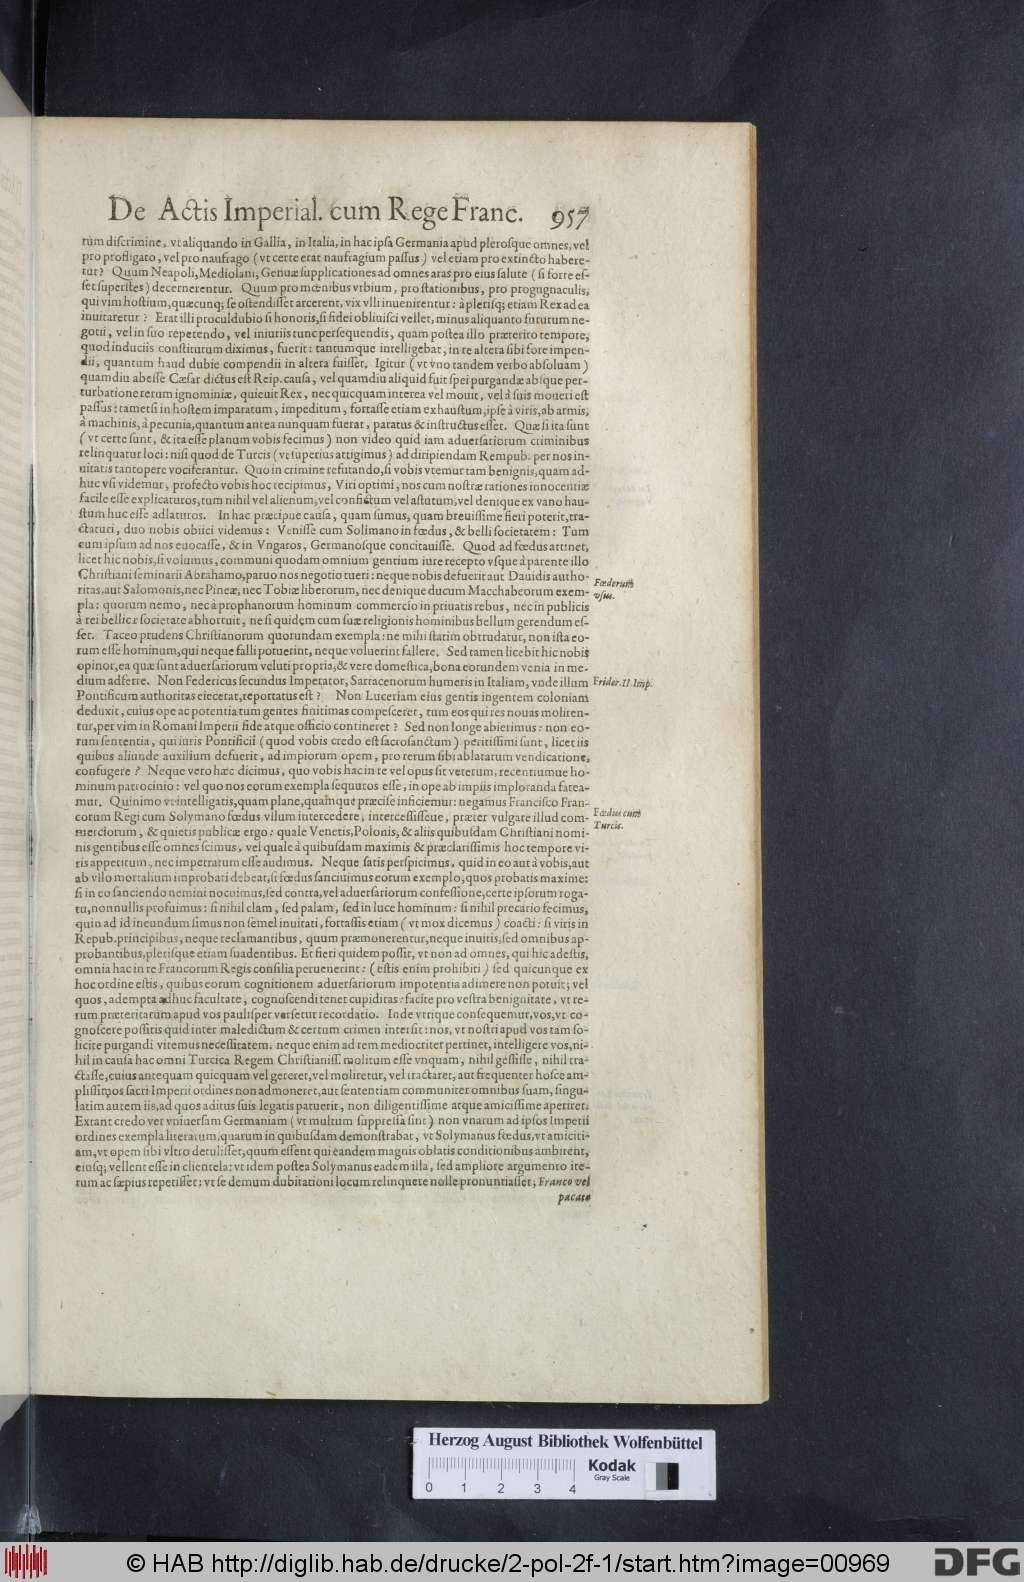 De Actis Imperial. cum Rege Franc. 957
rum discrimine, vt aliquando in Gallia, in Italia, in hac ipsa Germania apud plerosque omnes, vel
pro profligato, vel pro naufrago (vt certe erat naufragium passus) vel etiam pro extincto habere-
tur? Quum Neapoli, Mediolani, Genuæ supplicationes ad omnes aras pro eius salute (si forte es-
set superstes) decernerentur. Quum pro mœnibus vrbium, pro stationibus, pro progugnaculis,
qui vim hostium, quæcunq; se ostendisset arcerent, vix vlli inuenirentur: à plerisq; etiam Rex ad ea
inuitaretur? Erat illi proculdubio si honoris, si fidei obliuisci vellet, minus aliquanto futurum ne-
gotii, vel in suo repetendo, vel iniuriis tunc persequendis, quam postea illo præterito tempore,
quod induciis constitutum diximus, fuerit: tantumque intelligebat, in re altera sibi fore impen-
dii, quantum haud dubie compendii in altera fuisset. Igitur (vt vno tandem verbo absoluam)
quamdiu abesse Cæsar dictus est Reip. causa, vel quamdiu aliquid fuit spei purgandæ absque per-
turbatione rerum ignominiæ, quieuit Rex, nec quicquam interea vel mouit, vel à suis moueri est
passus: tametsi in hostem imparatum, impeditum, fortasse etiam exhaustum, ipse à viris, ab armis,
à machinis, à pecunia, quantum antea nunquam fuerat, paratus & instructus esset. Quæ si ita sunt
(vt certe sunt, & ita esse planum vobis fecimus) non video quid iam aduersariorum criminibus
relinquatur loci: nisi quod de Turcis (vt superius attigimus) ad diripiendam Rempub. per nos in-
uitatis tantopere vociferantur. Quo in crimine refutando, si vobis vtemur tam benignis, quam ad-
huc vsi videmur, profecto vobis hoc recipimus, Viri optimi, nos cum nostræ rationes innocentiæ
facile esse explicaturos, tum nihil vel alienum, vel confictum vel astutum, vel denique ex vano hau-
stum huc esse adlaturos. In hac præcipue causa, quam sumus, quam breuissime fieri poterit, tra-
ctaturi, duo nobis obiici videmus: Venisse cum Solimano in fœdus, & belli societatem: Tum
eum ipsum ad nos euocasse, & in Vngaros, Germanosque concitauisse. Quod ad fœdus attinet,
licet hic nobis, si volumus, communi quodam omnium gentium iure recepto vsque à parente illo
Christiani seminarii Abrahamo, paruo nos negotio tueri: neque nobis defuerit aut Dauidis autho-
ritas, aut Salomonis, nec Pineæ, nec Tobiæ liberorum, nec denique ducum Macchabeorum exem-
pla: quorum nemo, nec à prophanorum hominum commercio in priuatis rebus, nec in publicis
à rei bellicæ societate abhorruit, ne si quidem cum suæ religionis hominibus bellum gerendum es-
set. Taceo prudens Christianorum quorundam exempla: ne mihi statim obtrudatur, non ista eo-
rum esse hominum, qui neque falli potuerint, neque voluerint fallere. Sed tamen licebit hic nobis
opinor, ea quæ sunt aduersariorum veluti propria, & vere domestica, bona eorundem venia in me-
dium adferre. Non Federicus secundus Imperator, Sarracenorum humeris in Italiam, vnde illum
Pontificum authoritas eiecerat, reportatus est? Non Luceriam eius gentis ingentem coloniam
deduxit, cuius ope ac potentia tum gentes finitimas compesceret, tum eos qui res nouas moliren-
tur, per vim in Romani Imperii fide atque officio contineret? Sed non longe abierimus: non eo-
rum sententia, qui iuris Pontificii (quod vobis credo est sacrosanctum) peritissimi sunt, licet iis
quibus aliunde auxilium defuerit, ad impiorum opem, pro rerum sibi ablatarum vendicatione,
confugere? Neque vero hæc dicimus, quo vobis hac in re vel opus sit veterum, recentiumue ho-
minum patrocinio: vel quo nos eorum exempla sequutos esse, in ope ab impiis imploranda fatea-
mur. Quinimo vt intelligatis, quam plane, quamque præcise inficiemur: negamus Francisco Fran-
corum Regi cum Solymano fœdus vllum intercedere, intercessisseue, præter vulgare illud com-
merciorum, & quietis publicæ ergo: quale Venetis, Polonis, & aliis quibusdam Christiani nomi-
nis gentibus esse omnes scimus, vel quale à quibusdam maximis & præclarissimis hoc tempore vi-
ris appetitum, nec impetratum esse audimus. Neque satis perspicimus, quid in eo aut à vobis, aut
ab vllo mortalium improbari debeat, si fœdus sanciuimus eorum exemplo, quos probatis maxime:
si in eo sanciendo nemini nocuimus, sed contra, vel aduersariorum confessione, certe ipsorum roga-
tu, nonnullis profuimus: si nihil clam, sed palam, sed in luce hominum: si nihil precario fecimus,
quin ad id ineundum simus non semel inuitati, fortassis etiam (vt mox dicemus) coacti: si viris in
Repub. principibus, neque reclamantibus, quum præmonerentur, neque inuitis, sed omnibus ap-
probantibus, plerisque etiam suadentibus. Et fieri quidem possit, vt non ad omnes, qui hic adestis,
omnia hac in re Francorum Regis consilia peruenerint: (estis enim prohibiti) sed quicunque ex
hoc ordine estis, quibus eorum cognitionem aduersariorum impotentia adimere non potuit; vel
quos, adempta adhuc facultate, cognoscendi tenet cupiditas: facite pro vestra benignitate, vt re-
rum præteritarum apud vos paulisper versetur recordatio. Inde vtrique consequemur, vos, vt co-
gnoscere possitis quid inter maledictum & certum crimen intersit: nos, vt nostri apud vos tam so-
licite purgandi vitemus necessitatem. neque enim ad rem mediocriter pertinet, intelligere vos, ni-
hil in causa hac omni Turcica Regem Christianiss. molitum esse vnquam, nihil gessisse, nihil tra-
ctasse, cuius antequam quicquam vel gereret, vel moliretur, vel tractaret, aut frequenter hosce am-
plissimos sacri Imperii ordines non admoneret, aut sententiam communiter omnibus suam, singu-
latim autem iis, ad quos aditus suis legatis patuerit, non diligentissime atque amicissime aperiret.
Extant credo per vniuersam Germaniam (vt multum suppressa sint) non vnarum ad ipsos Imperii
ordines exempla literarum, quarum in quibusdam demonstrabat, vt Solymanus fœdus, vt amiciti-
am, vt opem sibi vltro detulisset, quum essent qui eandem magnis oblatis conditionibus ambirent,
eiusq; vellent esse in clientela: vt idem postea Solymanus eadem illa, sed ampliore argumento ite-
rum ac sæpius repetisset: vt se demum dubitationi locum relinquere nolle pronuntiasset; Franco vel
pacato
Fœderum
vsus.
Frider. II. Imp.
Fœdus cum
Turcis.
Herzog August Bibliothek Wolfenbüttel
Kodak
Gray Scale
0 1 2 3 4
© HAB http://diglib.hab.de/drucke/2-pol-2f-1/start.htm?image=00969
DFG